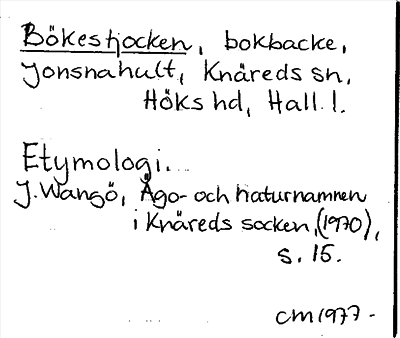 Bökestjocken, bokbacke,
Jonsnahult, Knäreds sn,
Höks hd, Hall l.
Etymologi.
J. Wangö, Ägo- och naturnamnen
i Knäreds socken, (1970),
s. 15.
CM 1977-